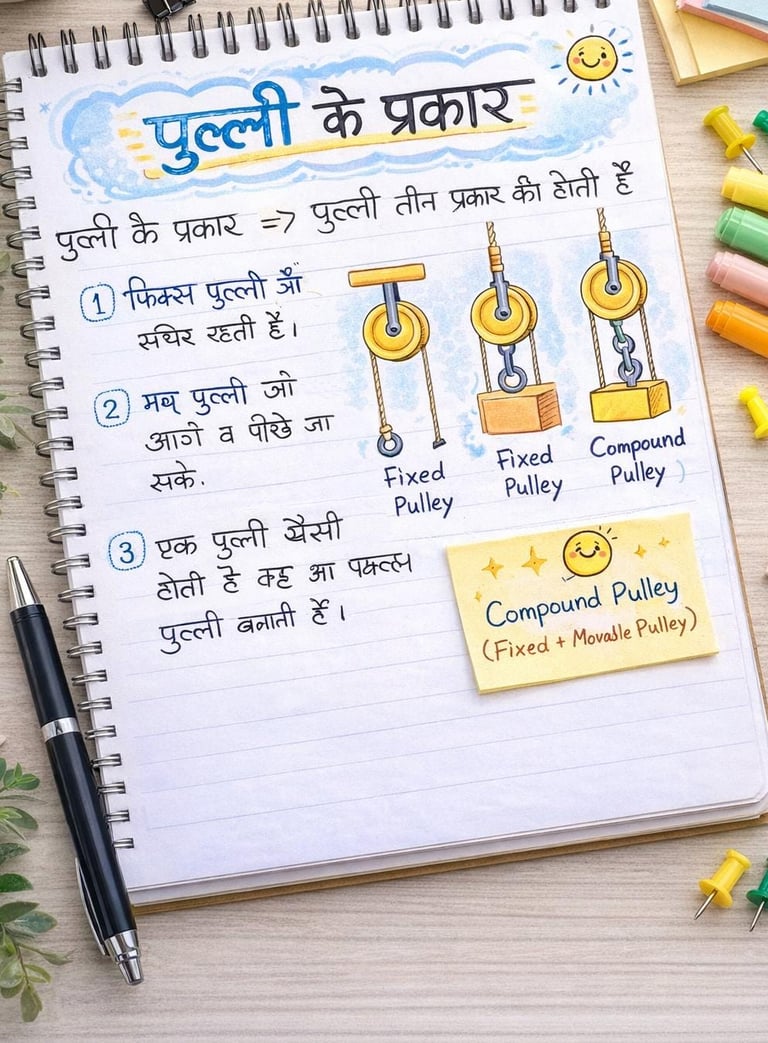 पुल्ली के प्रकार
पुल्ली के प्रकार => पुल्ली तीन प्रकार की होती है
1 फिक्स पुल्ली जो
सथिर रहती है।
2 मूव पुल्ली जो
आगे व पीछे जा
सके.
3 एक पुल्ली
होती है
पुल्ली बनाती है।
Fixed
Pulley
Fixed
Pulley
Compound
Pulley
Compound Pulley
(Fixed + Movable Pulley)